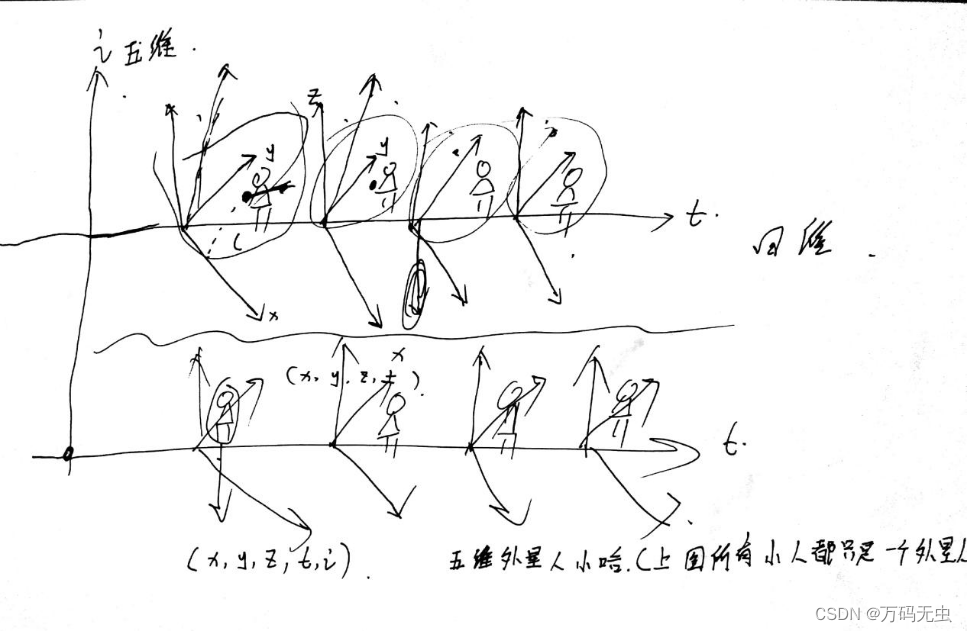 i 五维.
z
y
y
t.
四维.
x
x
(x, y, z, t).
t.
(x, y, z, t, i).
五维外星人小哈.(上图所有小人都只是一个外星人
CSDN @万码无虫